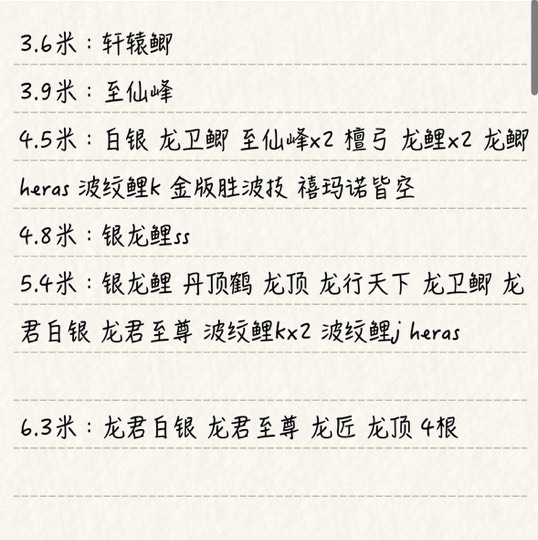 3.6米：轩辕鲫
3.9米：至仙峰
4.5米：白银 龙卫鲫 至仙峰x2 檀弓 龙鲤x2 龙鲫
heras 波纹鲤k 金版胜波技 禧玛诺皆空
4.8米：银龙鲤ss
5.4米：银龙鲤 丹顶鹤 龙顶 龙行天下 龙卫鲫 龙
君白银 龙君至尊 波纹鲤kx2 波纹鲤j heras
6.3米：龙君白银 龙君至尊 龙匠 龙顶 4根